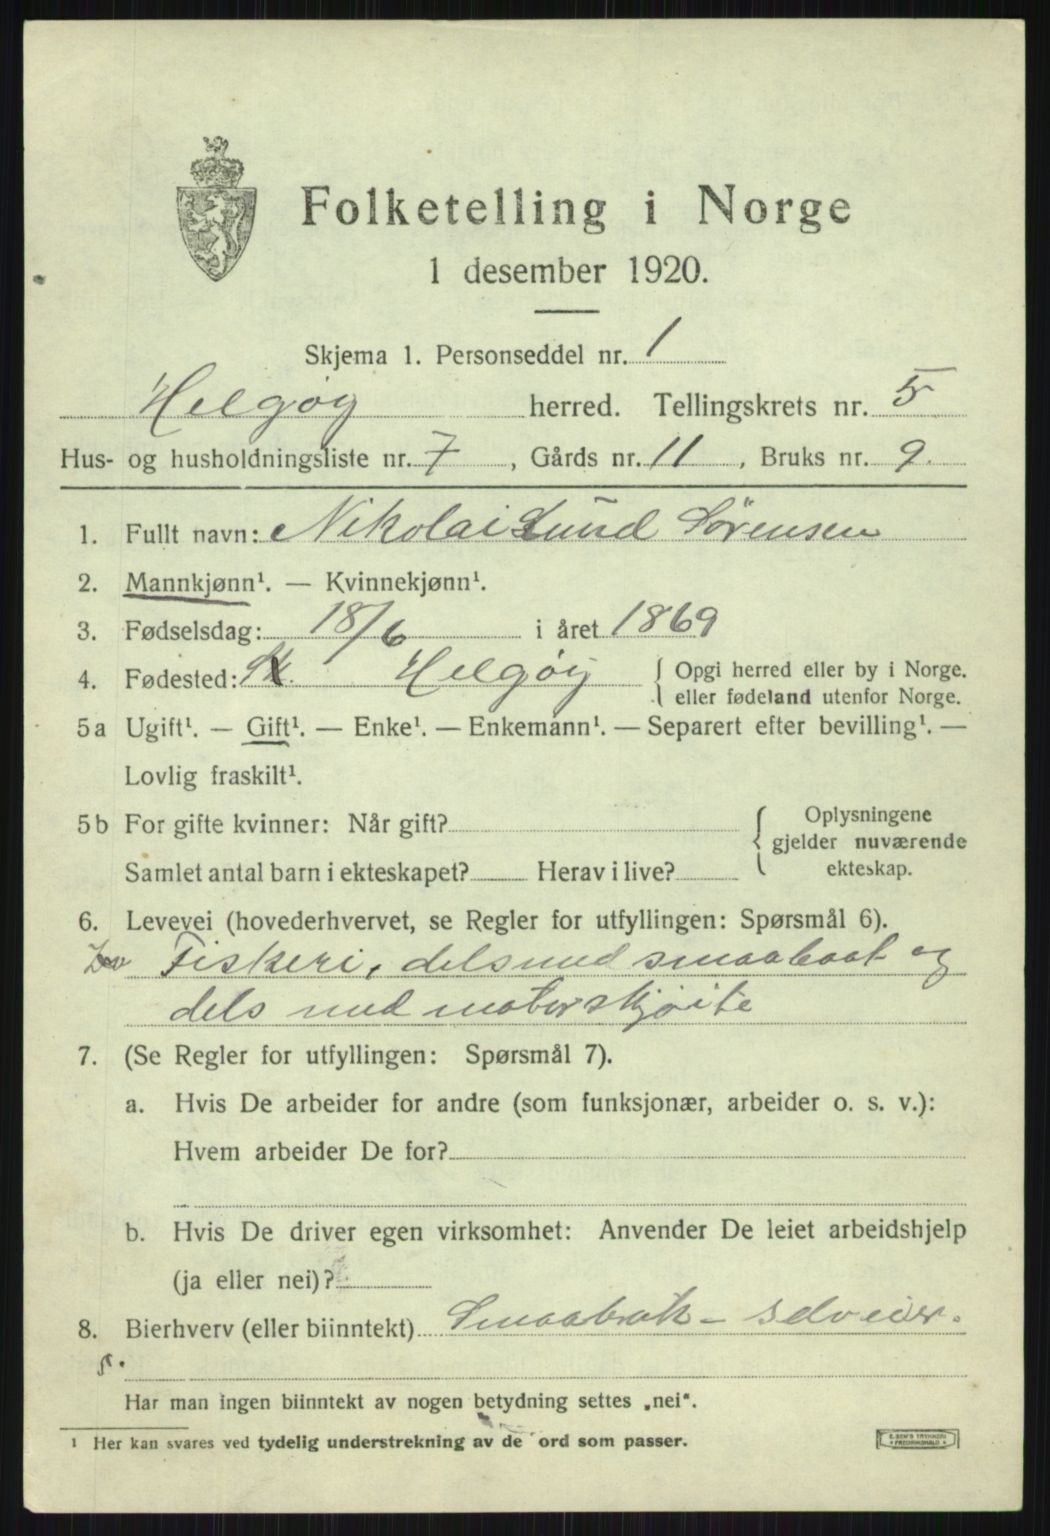 Folketelling i Norge
1 desember 1920.
Skjema 1. Personseddel nr. 1
Helgøy herred. Tellingskrets nr. 5
Hus- og husholdningsliste nr. 7, Gårds nr. 11, Bruks nr. 9.
1. Fullt navn: Nikolai Lund Sørensen
2. Mannkjønn¹. — Kvinnekjønn¹.
3. Fødselsdag: 18/6 i året 1869
4. Fødested: Helgøy { Opgi herred eller by i Norge.
eller fødeland utenfor Norge.
5a Ugift¹. — Gift¹. — Enke¹. — Enkemann¹. — Separert efter bevilling¹. —
Lovlig fraskilt¹.
5b For gifte kvinner: Når gift? { Oplysningene
gjelder nuværende
Samlet antal barn i ekteskapet? Herav i live? ekteskap.
6. Levevei (hovederhvervet, se Regler for utfyllingen: Spørsmål 6).
Fiskeri, dels med smaabaat og
dels med motorskjøite
7. (Se Regler for utfyllingen: Spørsmål 7).
a. Hvis De arbeider for andre (som funksjonær, arbeider o. s. v.):
Hvem arbeider De for?
b. Hvis De driver egen virksomhet: Anvender De leiet arbeidshjelp
(ja eller nei)?
8. Bierhverv (eller biinntekt) Smaabruk - selveier.
Har man ingen biinntekt av nogen betydning settes „nei“.
¹ Her kan svares ved tydelig understrekning av de ord som passer.
E. SEM'S TRYKKERI
FREDRIKSHALD